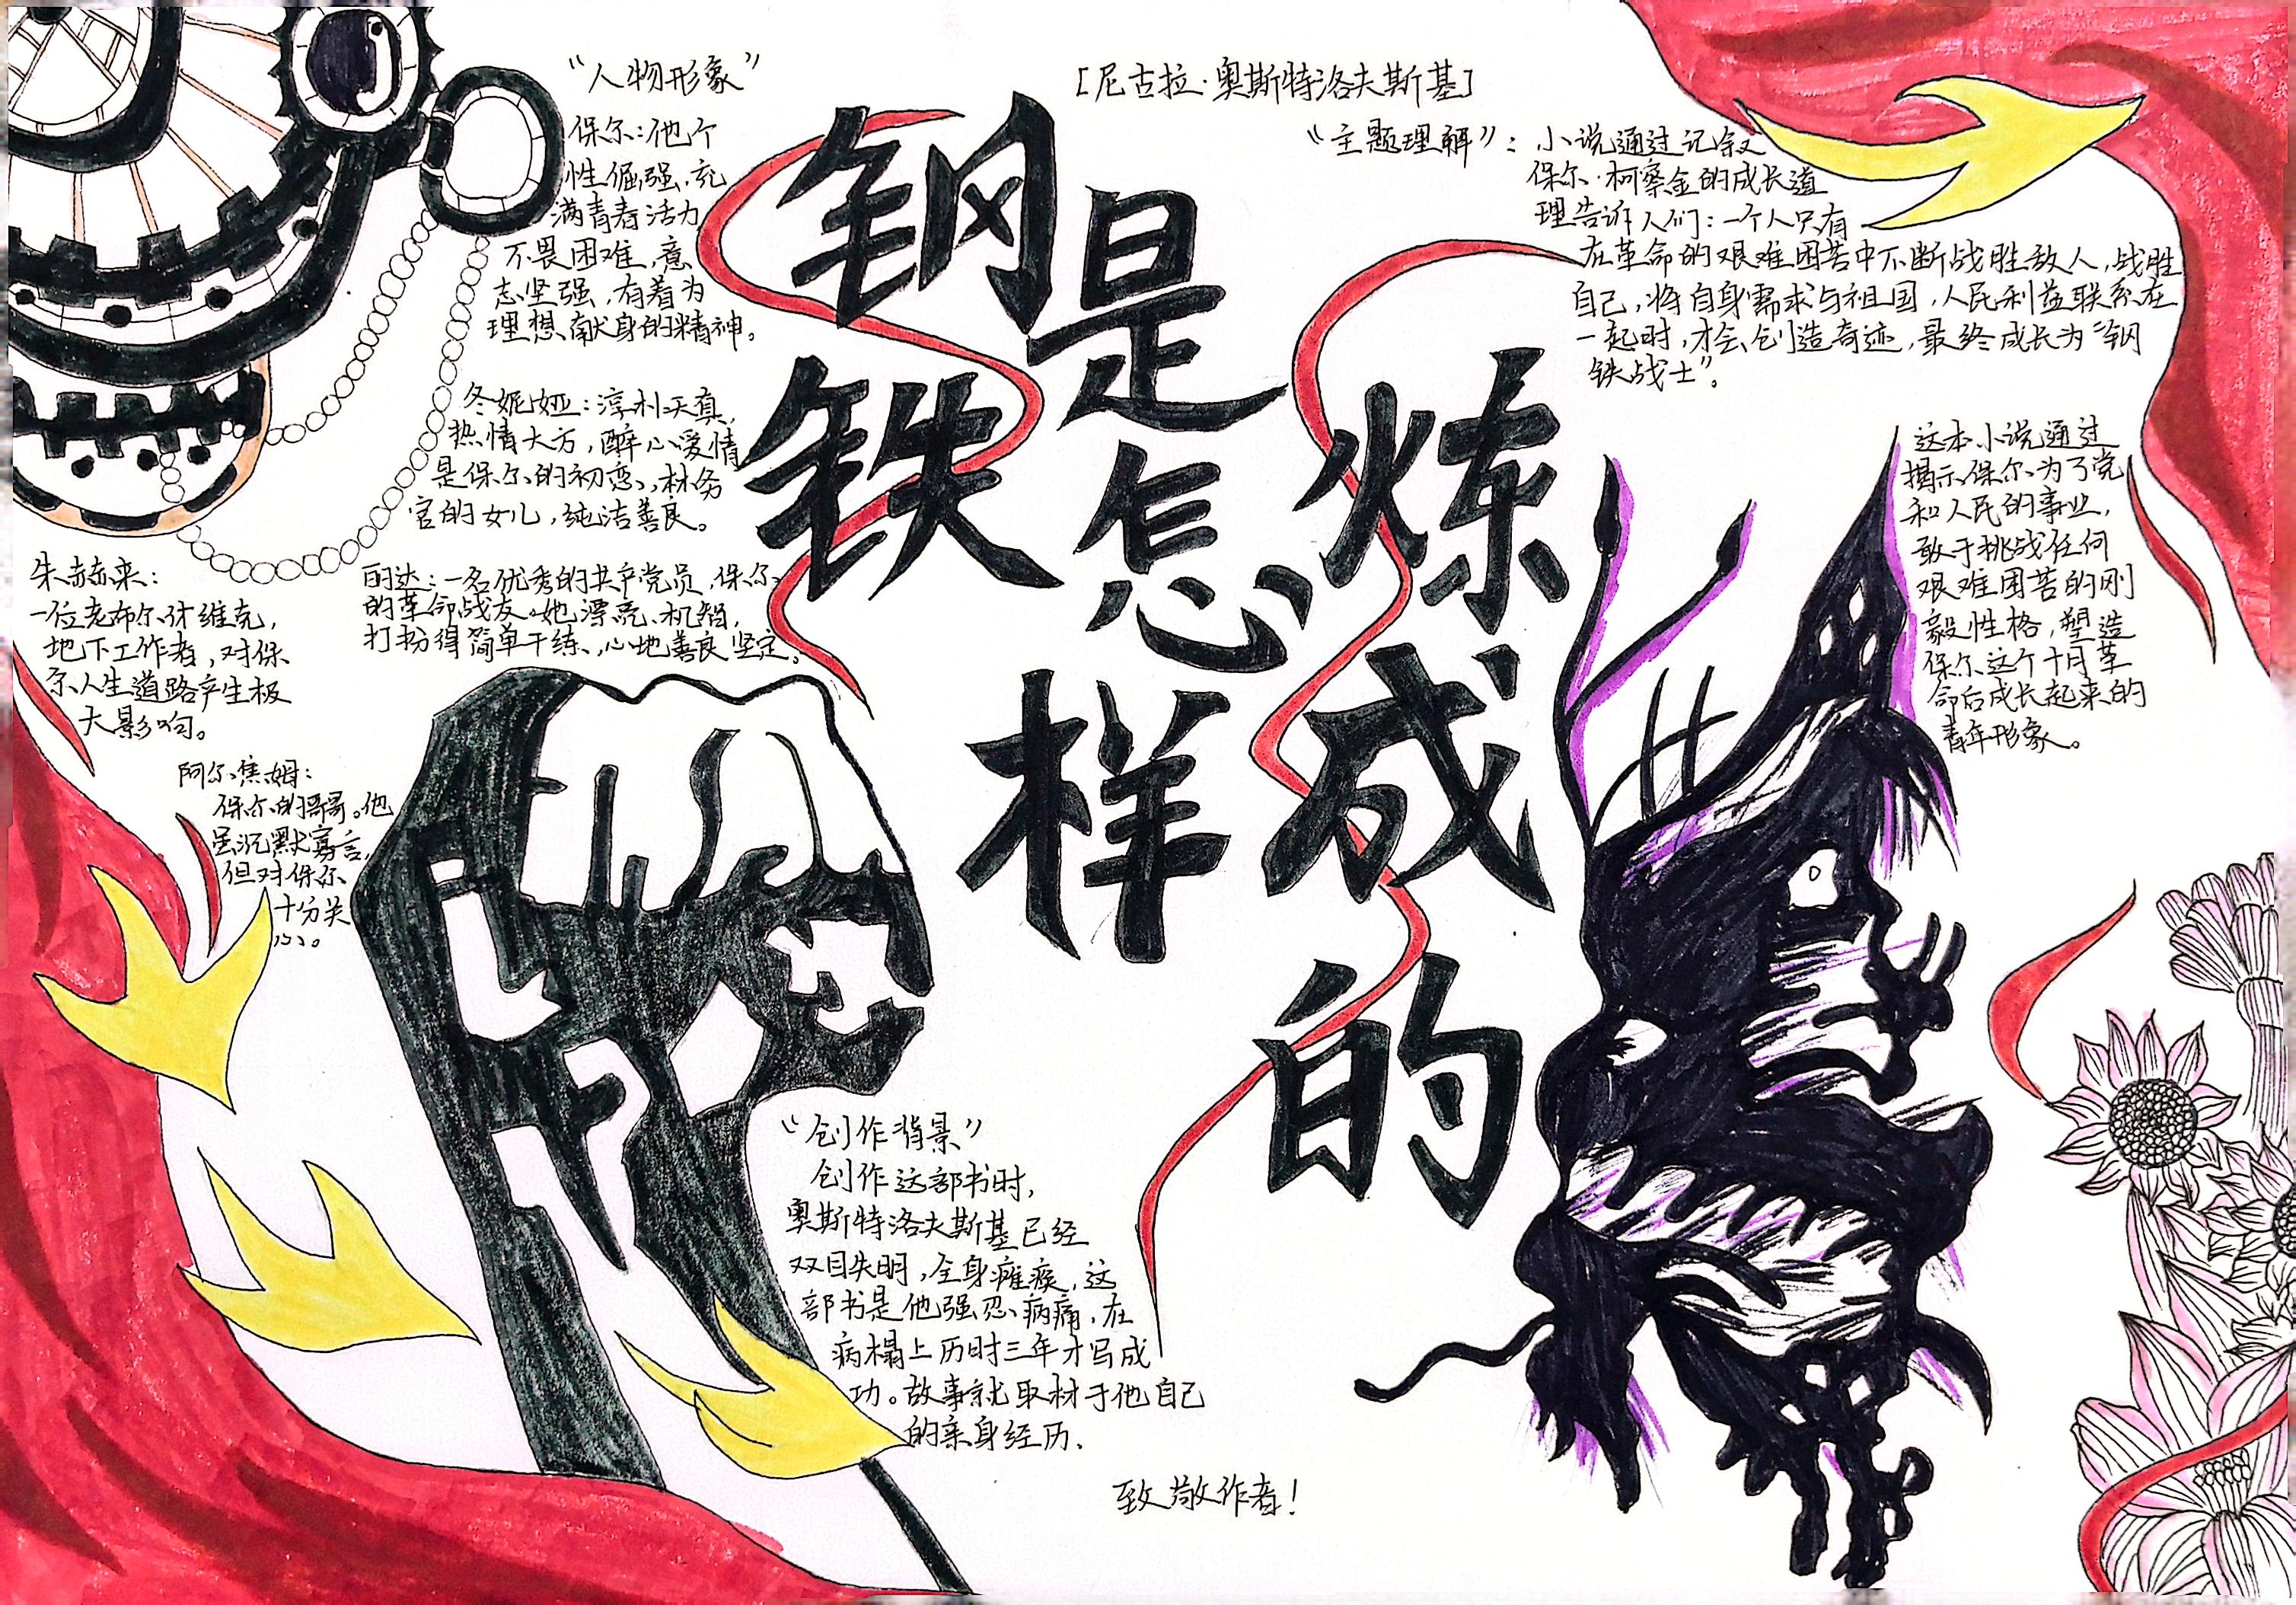 钢铁
是怎样
炼成的
[尼古拉·奥斯特洛夫斯基]
“人物形象”
保尔:他个
性倔强,充
满青春活力
不畏困难,意
志坚强,有着为
理想献身的精神。
冬妮娅:淳朴天真,
热情大方,醉心爱情
是保尔的初恋,林务
官的女儿,纯洁善良。
的达:一名优秀的共产党员,保尔
的革命战友。她漂亮、机智,
打扮得简单干练、心地善良坚定。
朱赫来:
一位老布尔什维克,
地下工作者,对保
尔人生道路产生极
大影响。
阿尔焦姆:
保尔的哥哥。他
虽沉默寡言,
但对保尔
十分关
心。
“主题理解”:小说通过记叙
保尔·柯察金的成长道
理告诉人们:一个人只有
在革命的艰难困苦中不断战胜敌人,战胜
自己,将自身需求与祖国,人民利益联系在
一起时,才会创造奇迹,最终成长为“钢
铁战士”。
这本小说通过
揭示保尔为了党
和人民的事业,
敢于挑战任何
艰难困苦的刚
毅性格,塑造
保尔这个十月革
命后成长起来的
青年形象。
“创作背景”
创作这部书时,
奥斯特洛夫斯基已经
双目失明,全身瘫痪,这
部书是他强忍病痛,在
病榻上历时三年才写成
功。故事就取材于他自己
的亲身经历.
致敬作者!